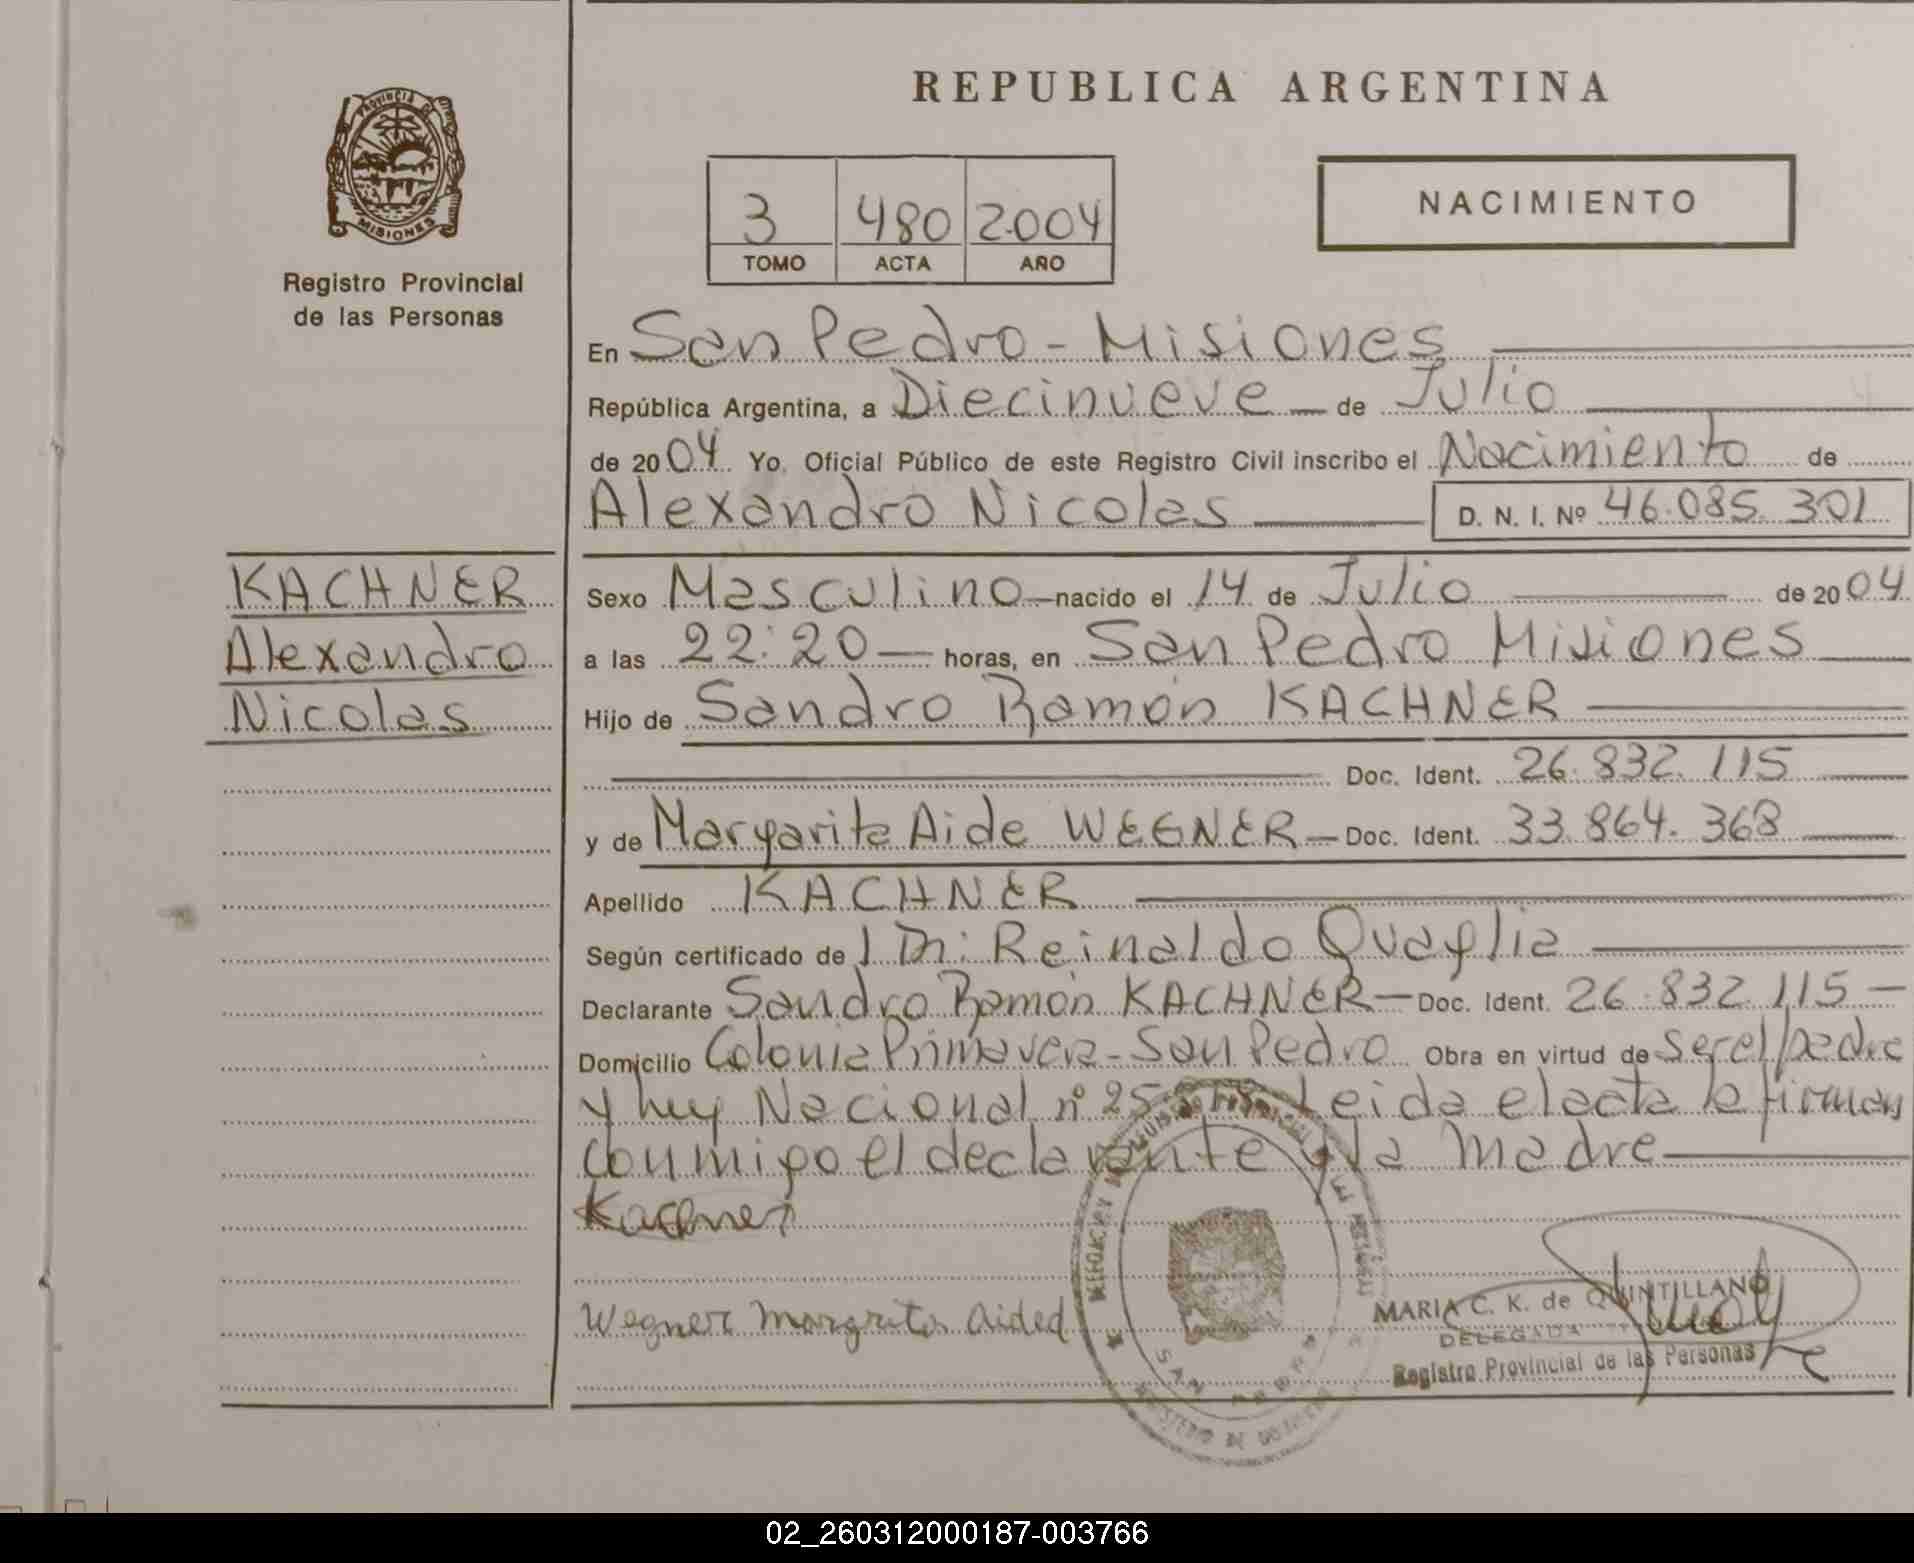 PROVINCIA DE
MISIONES
Registro Provincial
de las Personas
KACHNER
Alexandro
Nicolas
REPUBLICA ARGENTINA
3 480 2004
TOMO ACTA AÑO
NACIMIENTO
En San Pedro - Misiones
República Argentina, a Diecinueve de Julio
de 2004 Yo, Oficial Público de este Registro Civil inscribo el Nacimiento de
Alexandro Nicolas D. N. I. Nº 46.085.301
Sexo Masculino nacido el 14 de Julio de 2004
a las 22:20 horas, en San Pedro Misiones
Hijo de Sandro Ramón KACHNER
Doc. Ident. 26.832.115
y de Margarita Aide WEGNER Doc. Ident. 33.864.368
Apellido KACHNER
Según certificado de Reinaldo Quaglia
Declarante Sandro Ramón KACHNER Doc. Ident. 26.832.115
Domicilio Colonia Primavera - San Pedro Obra en virtud de ser el padre
y ley Nacional nº Leida el acta la firman
conmigo el declarante y la madre
Kachner
Wegner Margrita Aided
MARIA C. K. de QUINTILLANO
DELEGADA
Registro Provincial de las Personas
SAN PEDRO
02_260312000187-003766